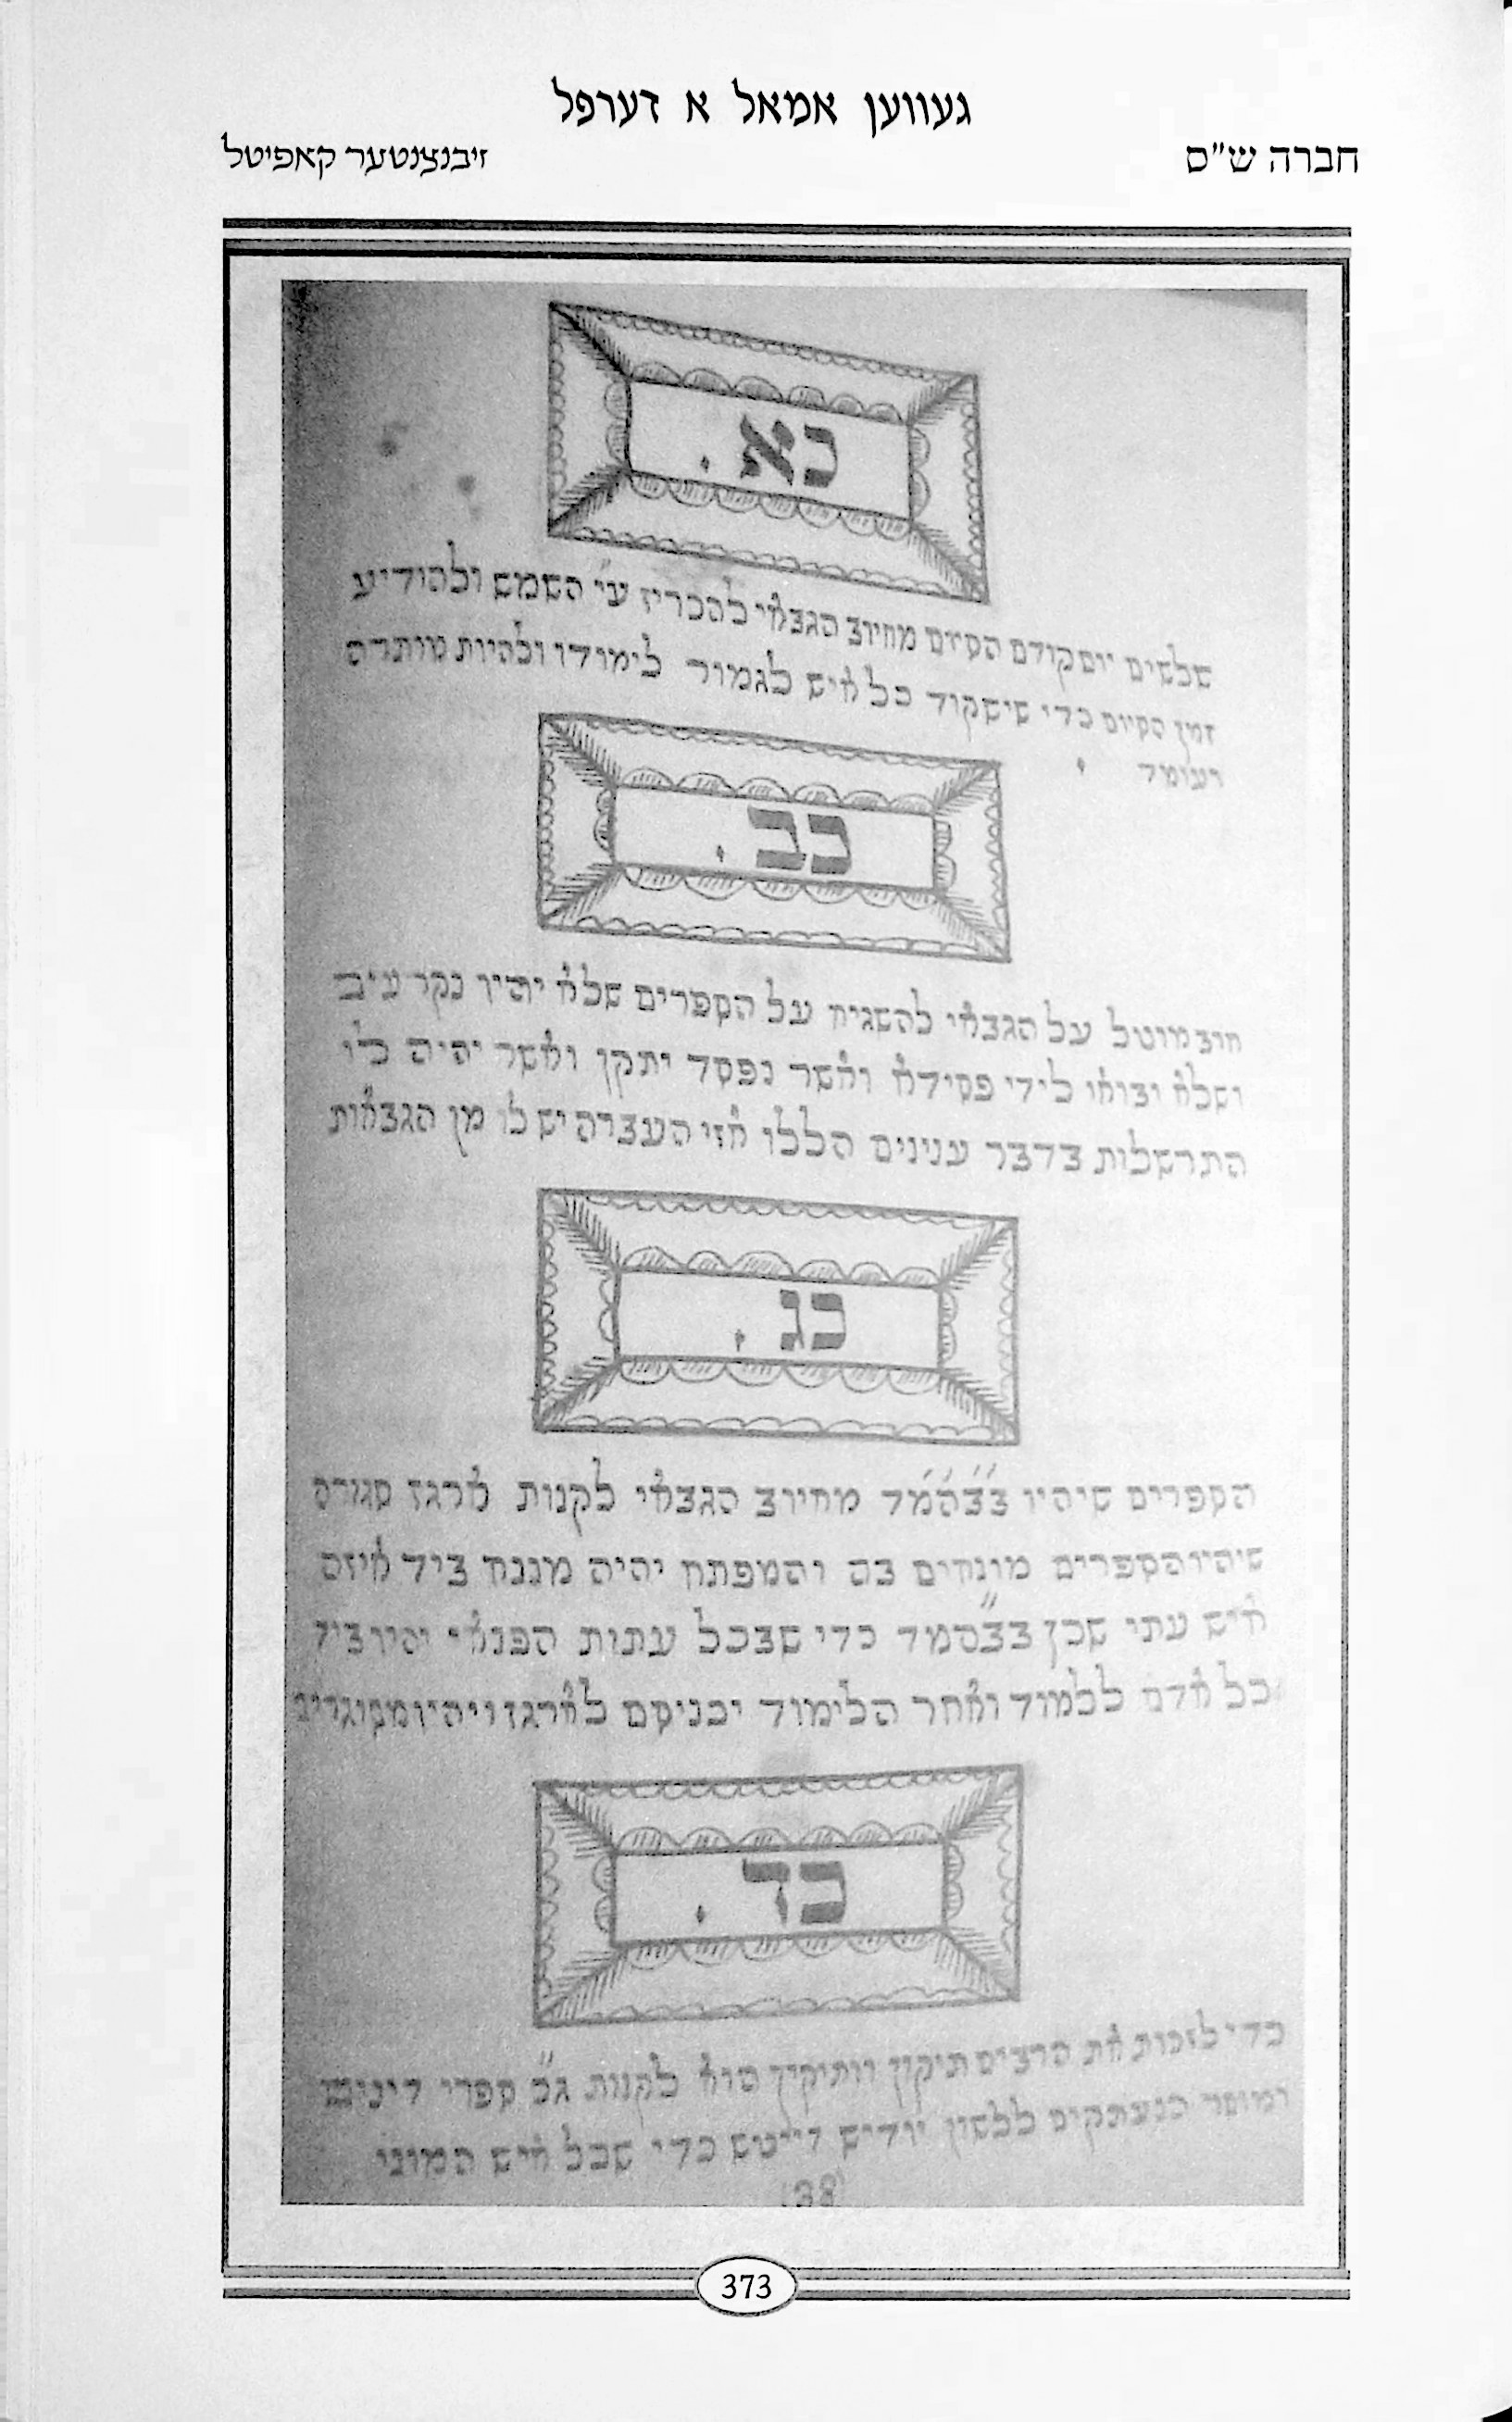 געווען אמאל א דערפל
חברה ש"ס
זיבנצנטער קאפיטל
כא.
שלשים יום קודם הסיום מחיוב הגבאי להכריז ע"י השמש ולהודיע
זמן הסיום כדי שישקוד כל איש לגמור לימודו ולהיות מותרה
ועומד .
כב.
חוב מוטל על הגבאי להשגיח על הספרים שלא יהיו
ושלא יבואו לידי פסידא ואשר נפסד יתקן ואשר יהיה לו
התרשלות בדבר ענינים הללו אזי העברה יש לו מן הגבאות
כג.
הספרים שיהיו בבהמד מחיוב הגבאי לקנות ארגז סגורה
שיהיו הספרים מונחים בה והמפתח יהיה מננח ביד איזה
איש עתי שכן בבהמד כדי שבכל עתות הפנאי יהיו ביד
כל אדם ללמוד ואחר הלימוד יכניסם לארגז ויהיו מסוגרים
כד.
כדי לזכות את הרבים תיקון וותיקין הוא לקנות ג"כ ספרי דינים
ומוסר הנעתקים ללשון יודיש דייטש כדי שכל איש המוני
(38)
373